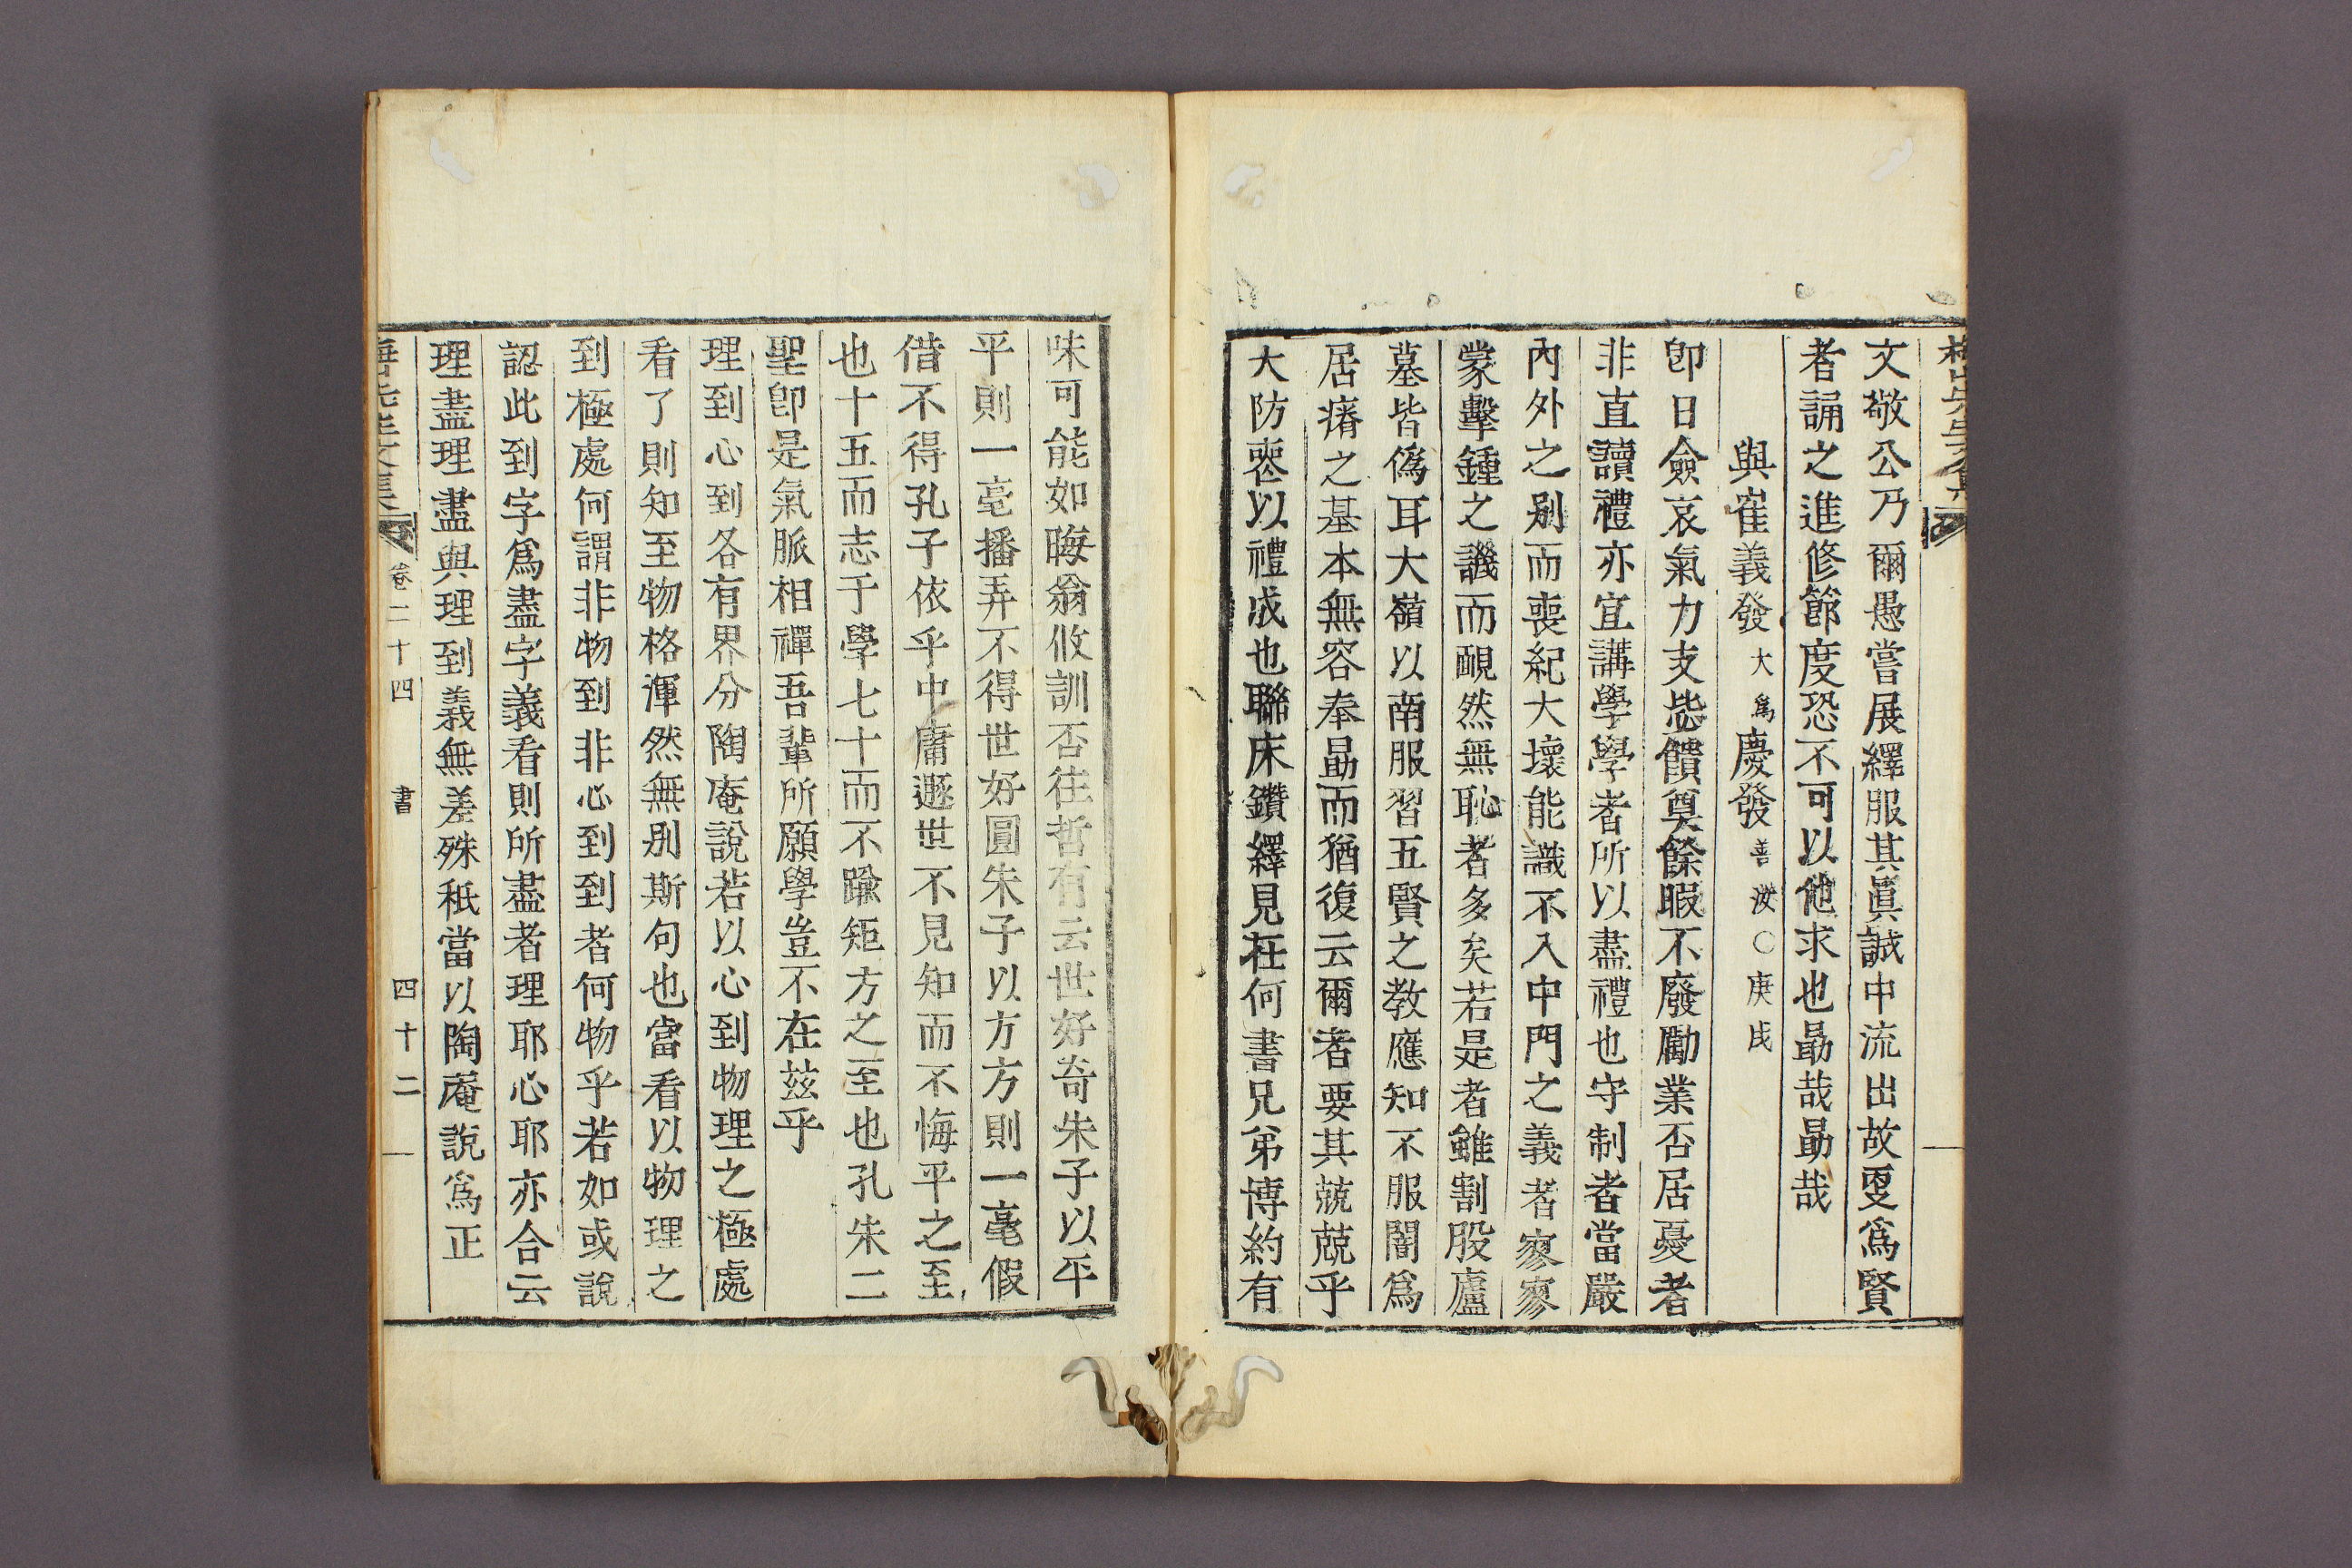 文敬公乃爾愚嘗展繹服其眞誠中流出故更爲賢
者誦之進修節度恐不可以他求也勗哉勗哉
與崔義發大爲慶發善浚○庚戌
卽日僉哀氣力支毖饋奠餘暇不廢勵業否居憂者
非直讀禮亦宜講學學者所以盡禮也守制者當嚴
內外之別而喪紀大壞能識不入中門之義者寥寥
蒙擊鍾之譏而靦然無恥者多矣若是者雖割股廬
墓皆僞耳大嶺以南服習五賢之敎應知不服闇爲
居瘠之基本無容奉勗而猶復云爾者要其兢兢乎
大防喪以禮成也聯床鑽繹見在何書兄弟博約有
味可能如晦翁攸訓否往哲有云世好奇朱子以平
平則一毫播弄不得世好圓朱子以方方則一毫假
借不得孔子依乎中庸遯世不見知而不悔平之至
也十五而志于學七十而不踰矩方之至也孔朱二
聖卽是氣脈相禪吾輩所願學豈不在玆乎
理到心到各有界分陶庵說若以心到物理之極處
看了則知至物格渾然無別斯句也當看以物理之
到極處何謂非物到非心到到者何物乎若如或說
認此到字爲盡字義看則所盡者理耶心耶亦合云
理盡理盡與理到義無差殊秪當以陶菴說爲正
卷二十四 書 四十二